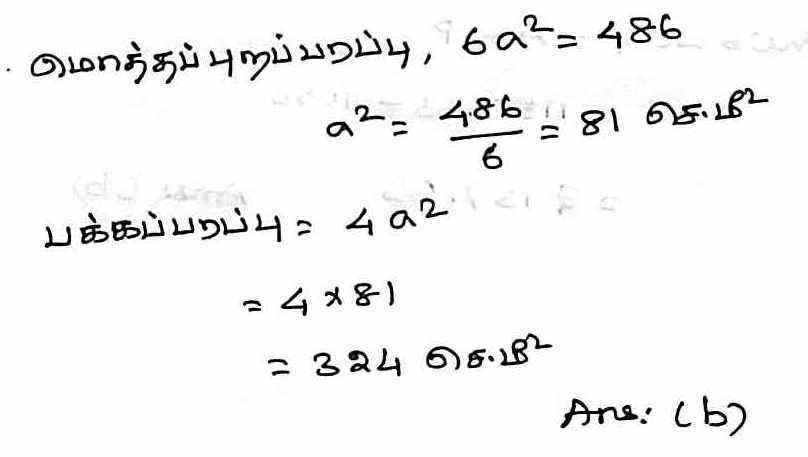 மொத்தப்புறப்பரப்பு, 6a² = 486
a² = 486/6 = 81 செ.மீ²
பக்கப்பரப்பு = 4a²
= 4 x 81
= 324 செ.மீ²
Ans: (b)